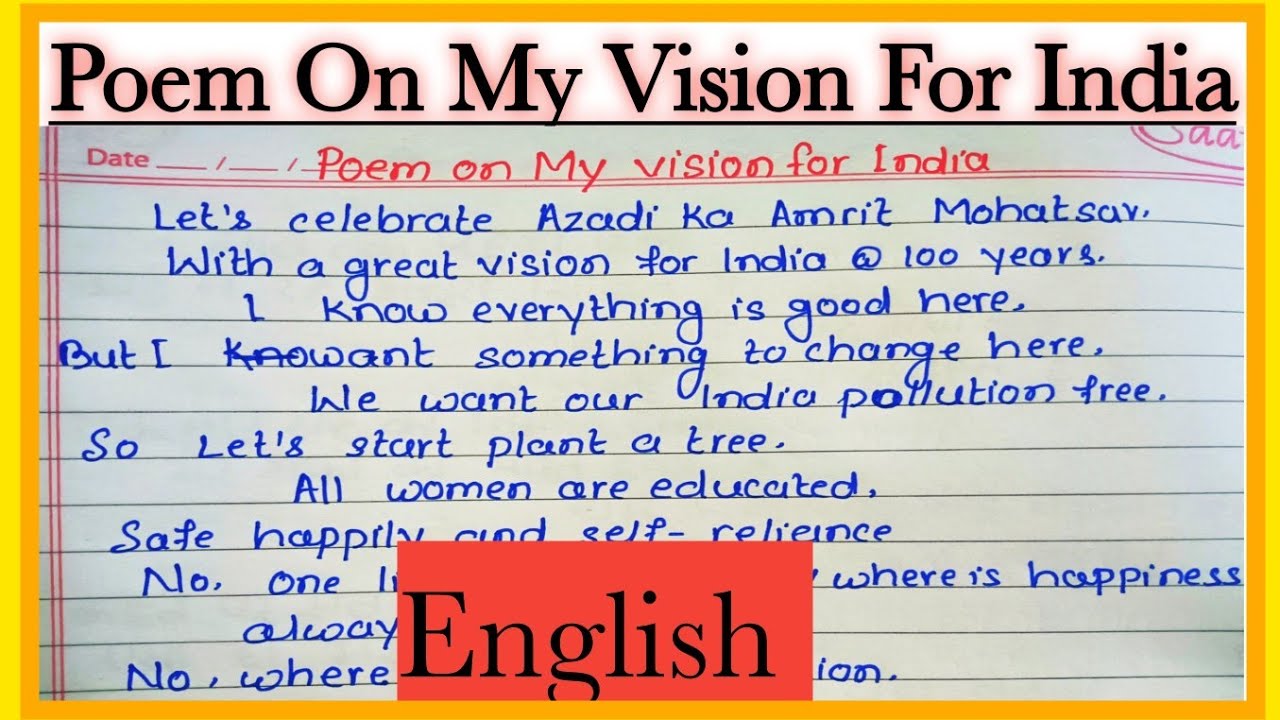 Poem On My Vision For India
Date __/__/__ Poem on My vision for India
Let's celebrate Azadi Ka Amrit Mohatsav.
With a great vision for India @ 100 years.
I know everything is good here.
But I want something to change here.
We want our India pollution free.
So Let's start plant a tree.
All women are educated,
Safe happily and self-relieance
No, one where is happiness
No, where
English